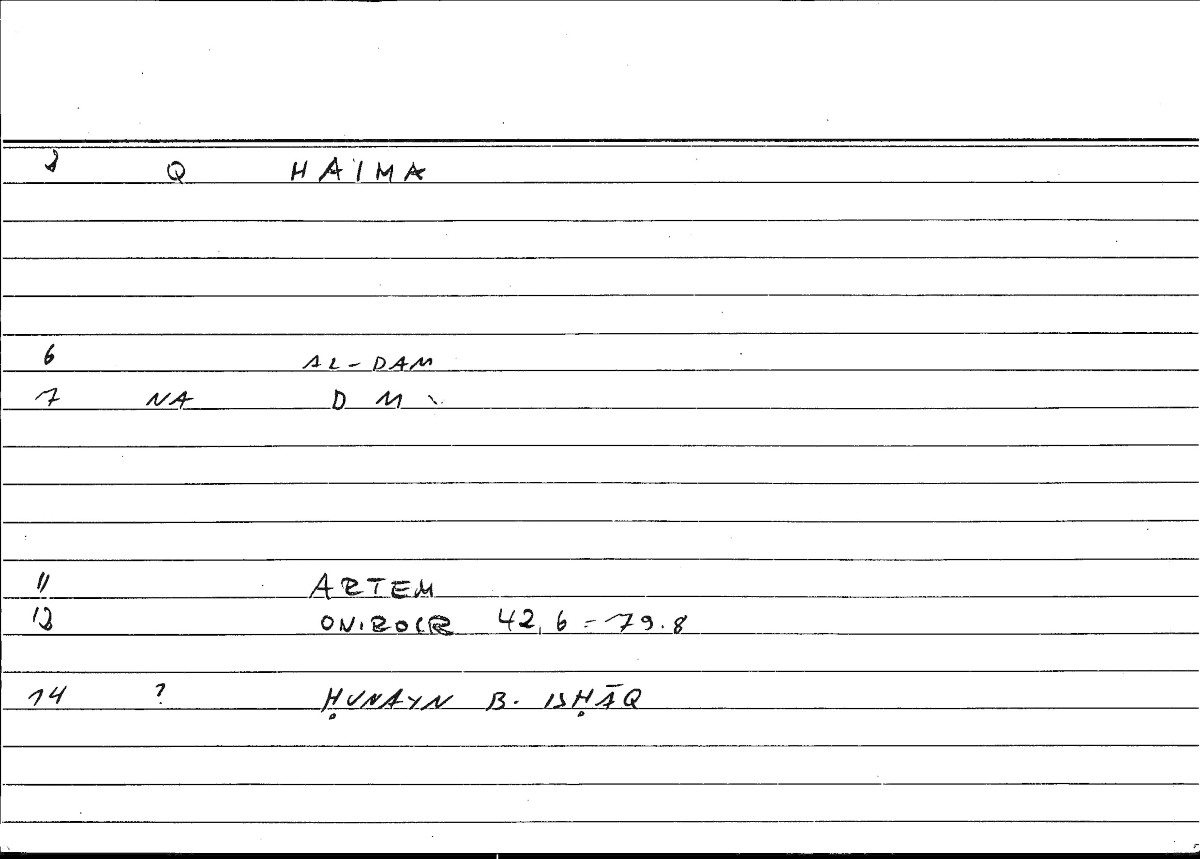 2 Q HAIMA
6 AL-DAM
7 NA D M
11 ARTEM
12 ONIROCR 42,6 = 79.8
14 ? ḤUNAYN B. ISḤĀQ